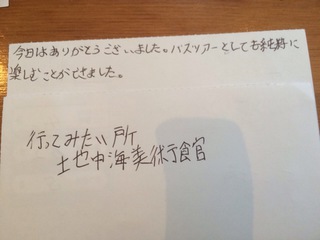 今日はありがとうございました。バスツアーとしても純粋に
楽しむことができました。
行ってみたい所
土也中海美術食官